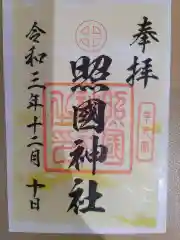 奉拝
照國神社
令和三年十二月十日